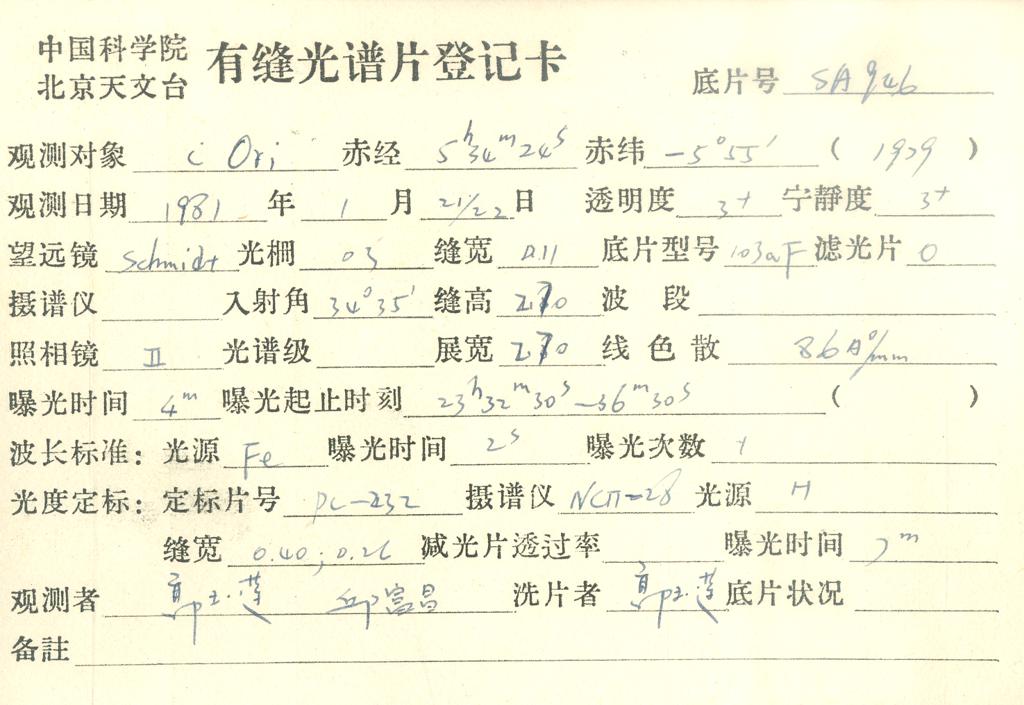 中国科学院
北京天文台
有缝光谱片登记卡
底片号 SA946
观测对象 ι Ori 赤经 5h34m24s 赤纬 -5°55′ ( 1979 )
观测日期 1981 年 1 月 21/22 日 透明度 3+ 宁静度 3+
望远镜 Schmidt 光栅 03 缝宽 0.11 底片型号 103aF 滤光片 0
摄谱仪 入射角 34°35′ 缝高 2.70 波段
照相镜 II 光谱级 展宽 2.70 线色散 86A°/mm
曝光时间 4m 曝光起止时刻 23h32m30s—36m30s ( )
波长标准: 光源 Fe 曝光时间 2s 曝光次数 1
光度定标: 定标片号 PC-232 摄谱仪 光源 H
缝宽 0.40; 0.26 减光片透过率 曝光时间 7m
观测者 郭玉莲 邱富昌 洗片者 郭玉莲 底片状况
备註